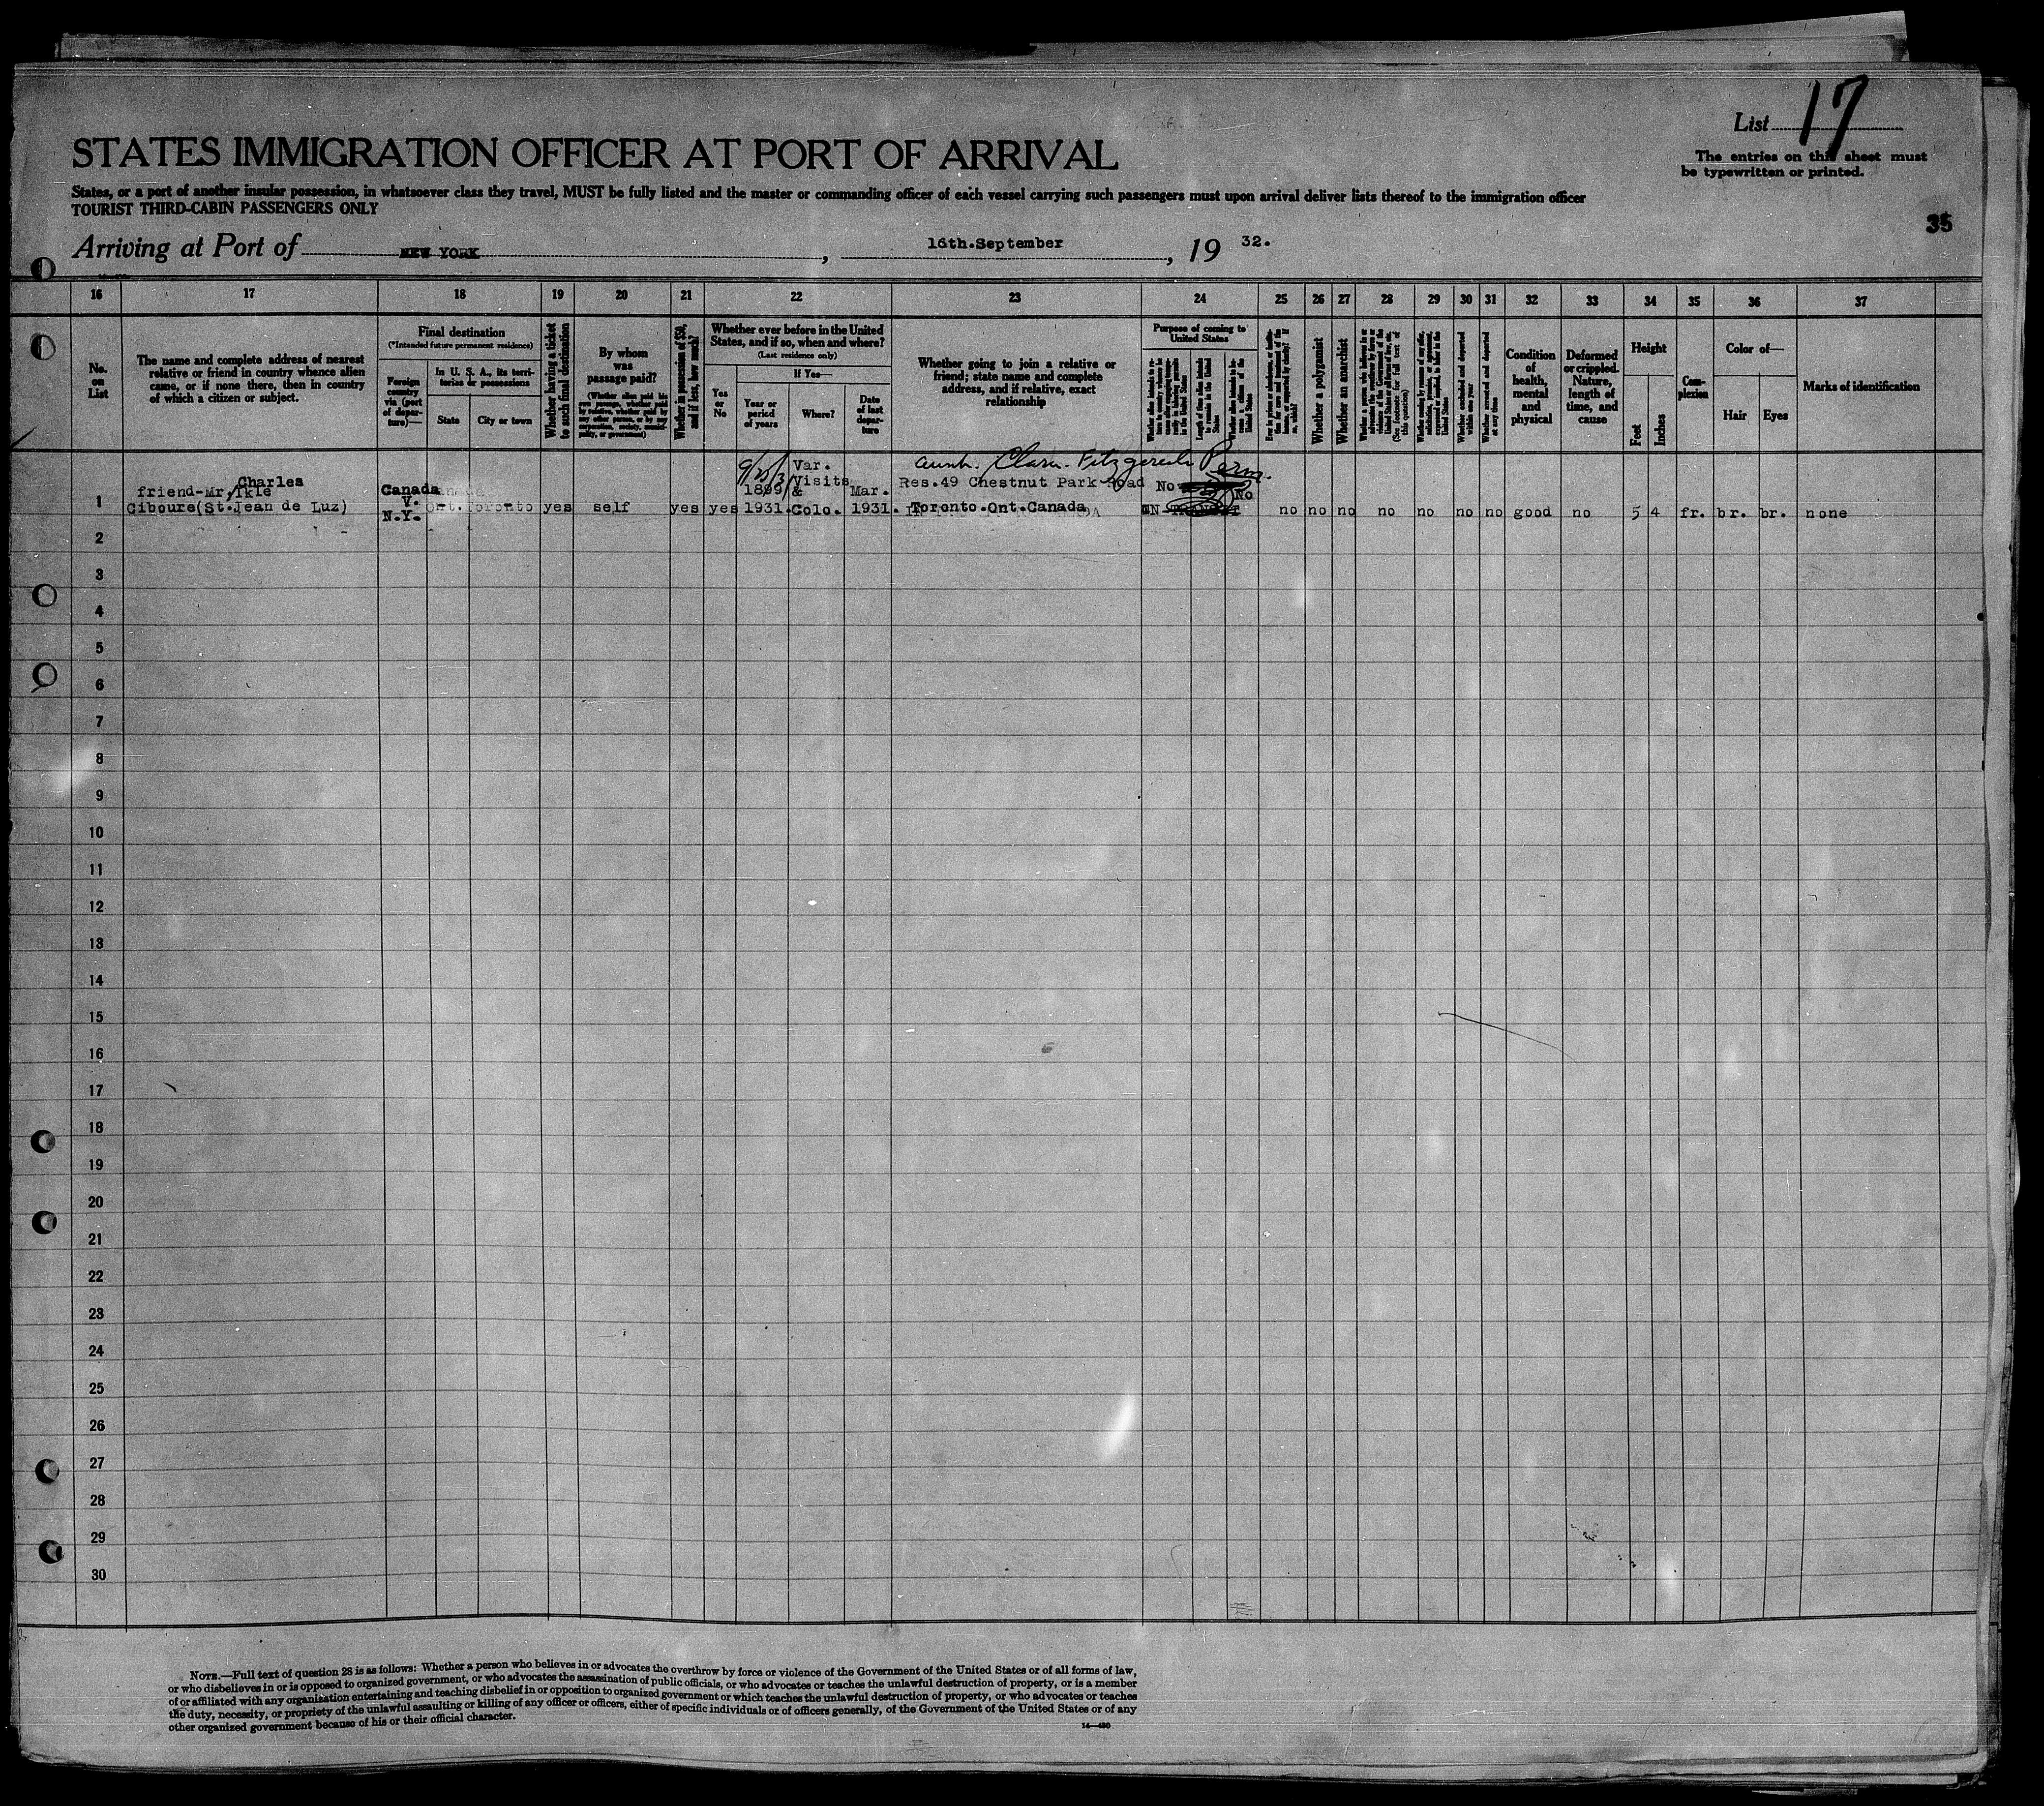 List 17
The entries on this sheet must
be typewritten or printed.
STATES IMMIGRATION OFFICER AT PORT OF ARRIVAL
States, or a port of another insular possession, in whatsoever class they travel, MUST be fully listed and the master or commanding officer of each vessel carrying such passengers must upon arrival deliver lists thereof to the immigration officer
TOURIST THIRD-CABIN PASSENGERS ONLY
35
Arriving at Port of NEW YORK, 16th.September, 19 32.
16 17 18 19 20 21 22 23 24 25 26 27 28 29 30 31 32 33 34 35 36 37
No.
on
List
The name and complete address of nearest
relative or friend in country whence alien
came, or if none there, then in country
of which a citizen or subject.
Final destination
(*Intended future permanent residence)
Foreign
country
via (port
of depar-
ture)—
In U. S. A., its terri-
tories or possessions
State
City or town
Whether having a ticket
to such final destination
By whom
was
passage paid?
(Whether alien paid his
own passage, whether paid
by relative, whether paid by
any other person, or by any
corporation, society, munici-
pality, or government)
Whether in possession of $50,
and if less, how much?
Whether ever before in the United
States, and if so, when and where?
(Last residence only)
Yes
or
No
If Yes—
Year or
period
of years
Where?
Date
of last
depar-
ture
Whether going to join a relative or
friend; state name and complete
address, and if relative, exact
relationship
Purpose of coming to
United States
Length of time alien intends
to remain in the United
States
Whether a polygamist
Whether an anarchist
(See footnote for full text of
this question)
Whether excluded and deported
within one year
Whether arrested and deported
at any time
Condition
of
health,
mental
and
physical
Deformed
or crippled.
Nature,
length of
time, and
cause
Height
Feet
Inches
Com-
plexion
Color of—
Hair
Eyes
Marks of identification
Charles
friend-Mr/Ikle
Ciboure(St.Jean de Luz)
Canada
V.
N.Y.
Ont. Toronto
yes self yes yes
1899
1931.
Var.
Visits
&
Colo.
Mar.
1931.
Aunt. Clara. Fitzgerald Perm.
Res.49 Chestnut Park Road
Toronto.Ont.Canada
No
No
no no no no no no no good no 5 4 fr. br. br. none
1
2
3
4
5
6
7
8
9
10
11
12
13
14
15
16
17
18
19
20
21
22
23
24
25
26
27
28
29
30
NOTE.—Full text of question 28 is as follows: Whether a person who believes in or advocates the overthrow by force or violence of the Government of the United States or of all forms of law,
or who disbelieves in or is opposed to organized government, or who advocates the assassination of public officials, or who advocates or teaches the unlawful destruction of property, or is a member
of or affiliated with any organization entertaining and teaching disbelief in or opposition to organized government or which teaches the unlawful destruction of property, or who advocates or teaches
the duty, necessity, or propriety of the unlawful assaulting or killing of any officer or officers, either of specific individuals or of officers generally, of the Government of the United States or of any
other organized government because of his or their official character.
14—430